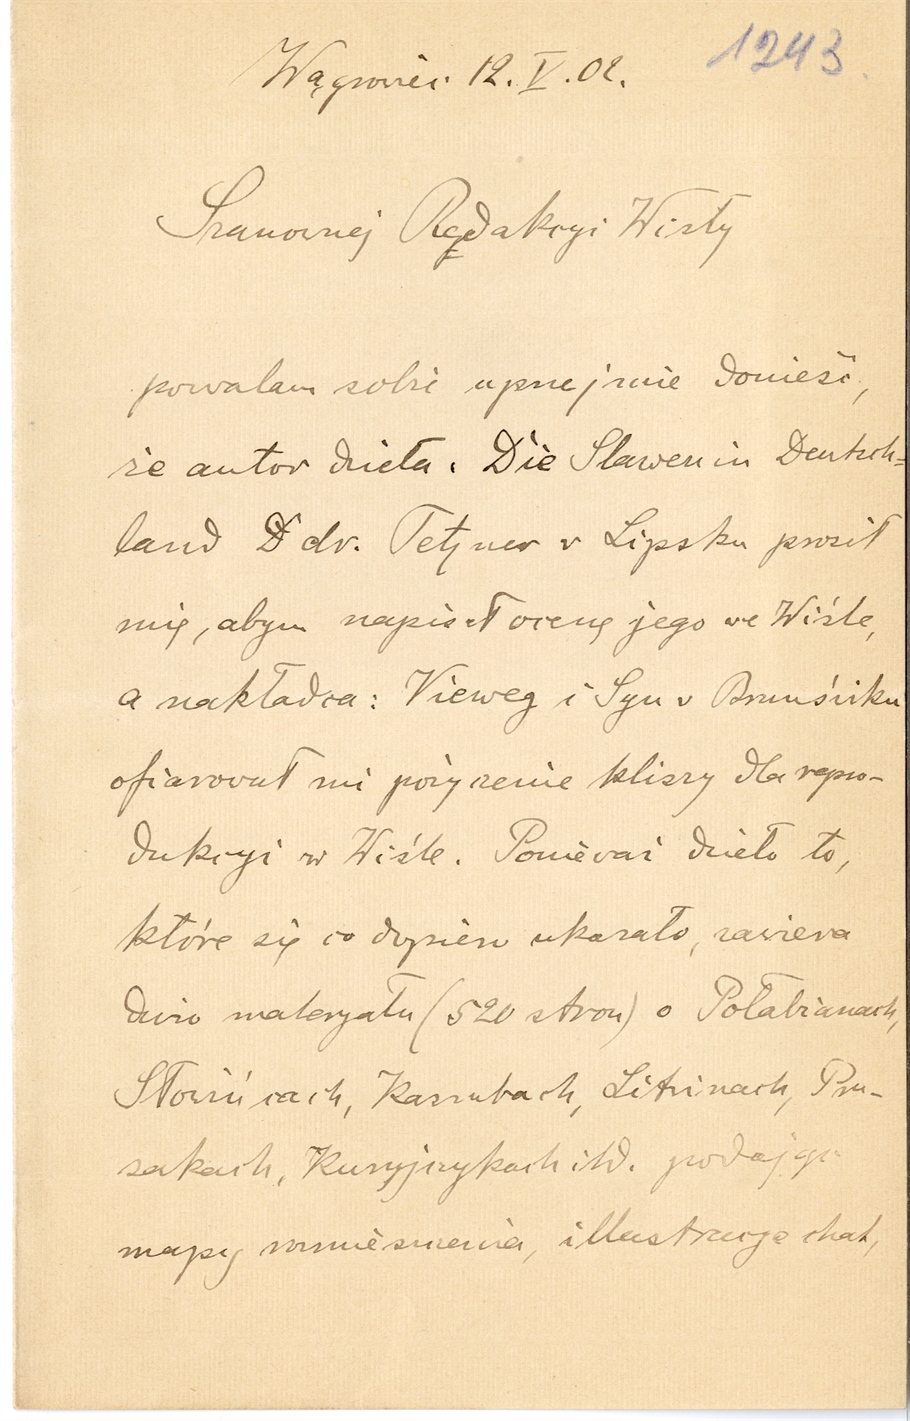 Wągrowiec 12. V. 02.
1243
Szanownej Redakcyi Wisły
pozwalam sobie uprzejmie donieść,
że autor dzieła: Die Slawen in Deutsch=
land dr. Tetzner w Lipsku prosił
mię, abym napisał ocenę jego we Wiśle,
a nakładca: Vieweg i Syn w Brunświku
ofiarował mi pożyczenie kliszy dla repro-
dukcyi w Wiśle. Ponieważ dzieło to,
które się co dopiero ukazało, zawiera
dużo materyału (520 stron) o Połabianach,
Słowińcach, Kaszubach, Litwinach, Pru-
sakach, Kuryjczykach itd. podając
mapy rozmieszczenia, illustracye chat,